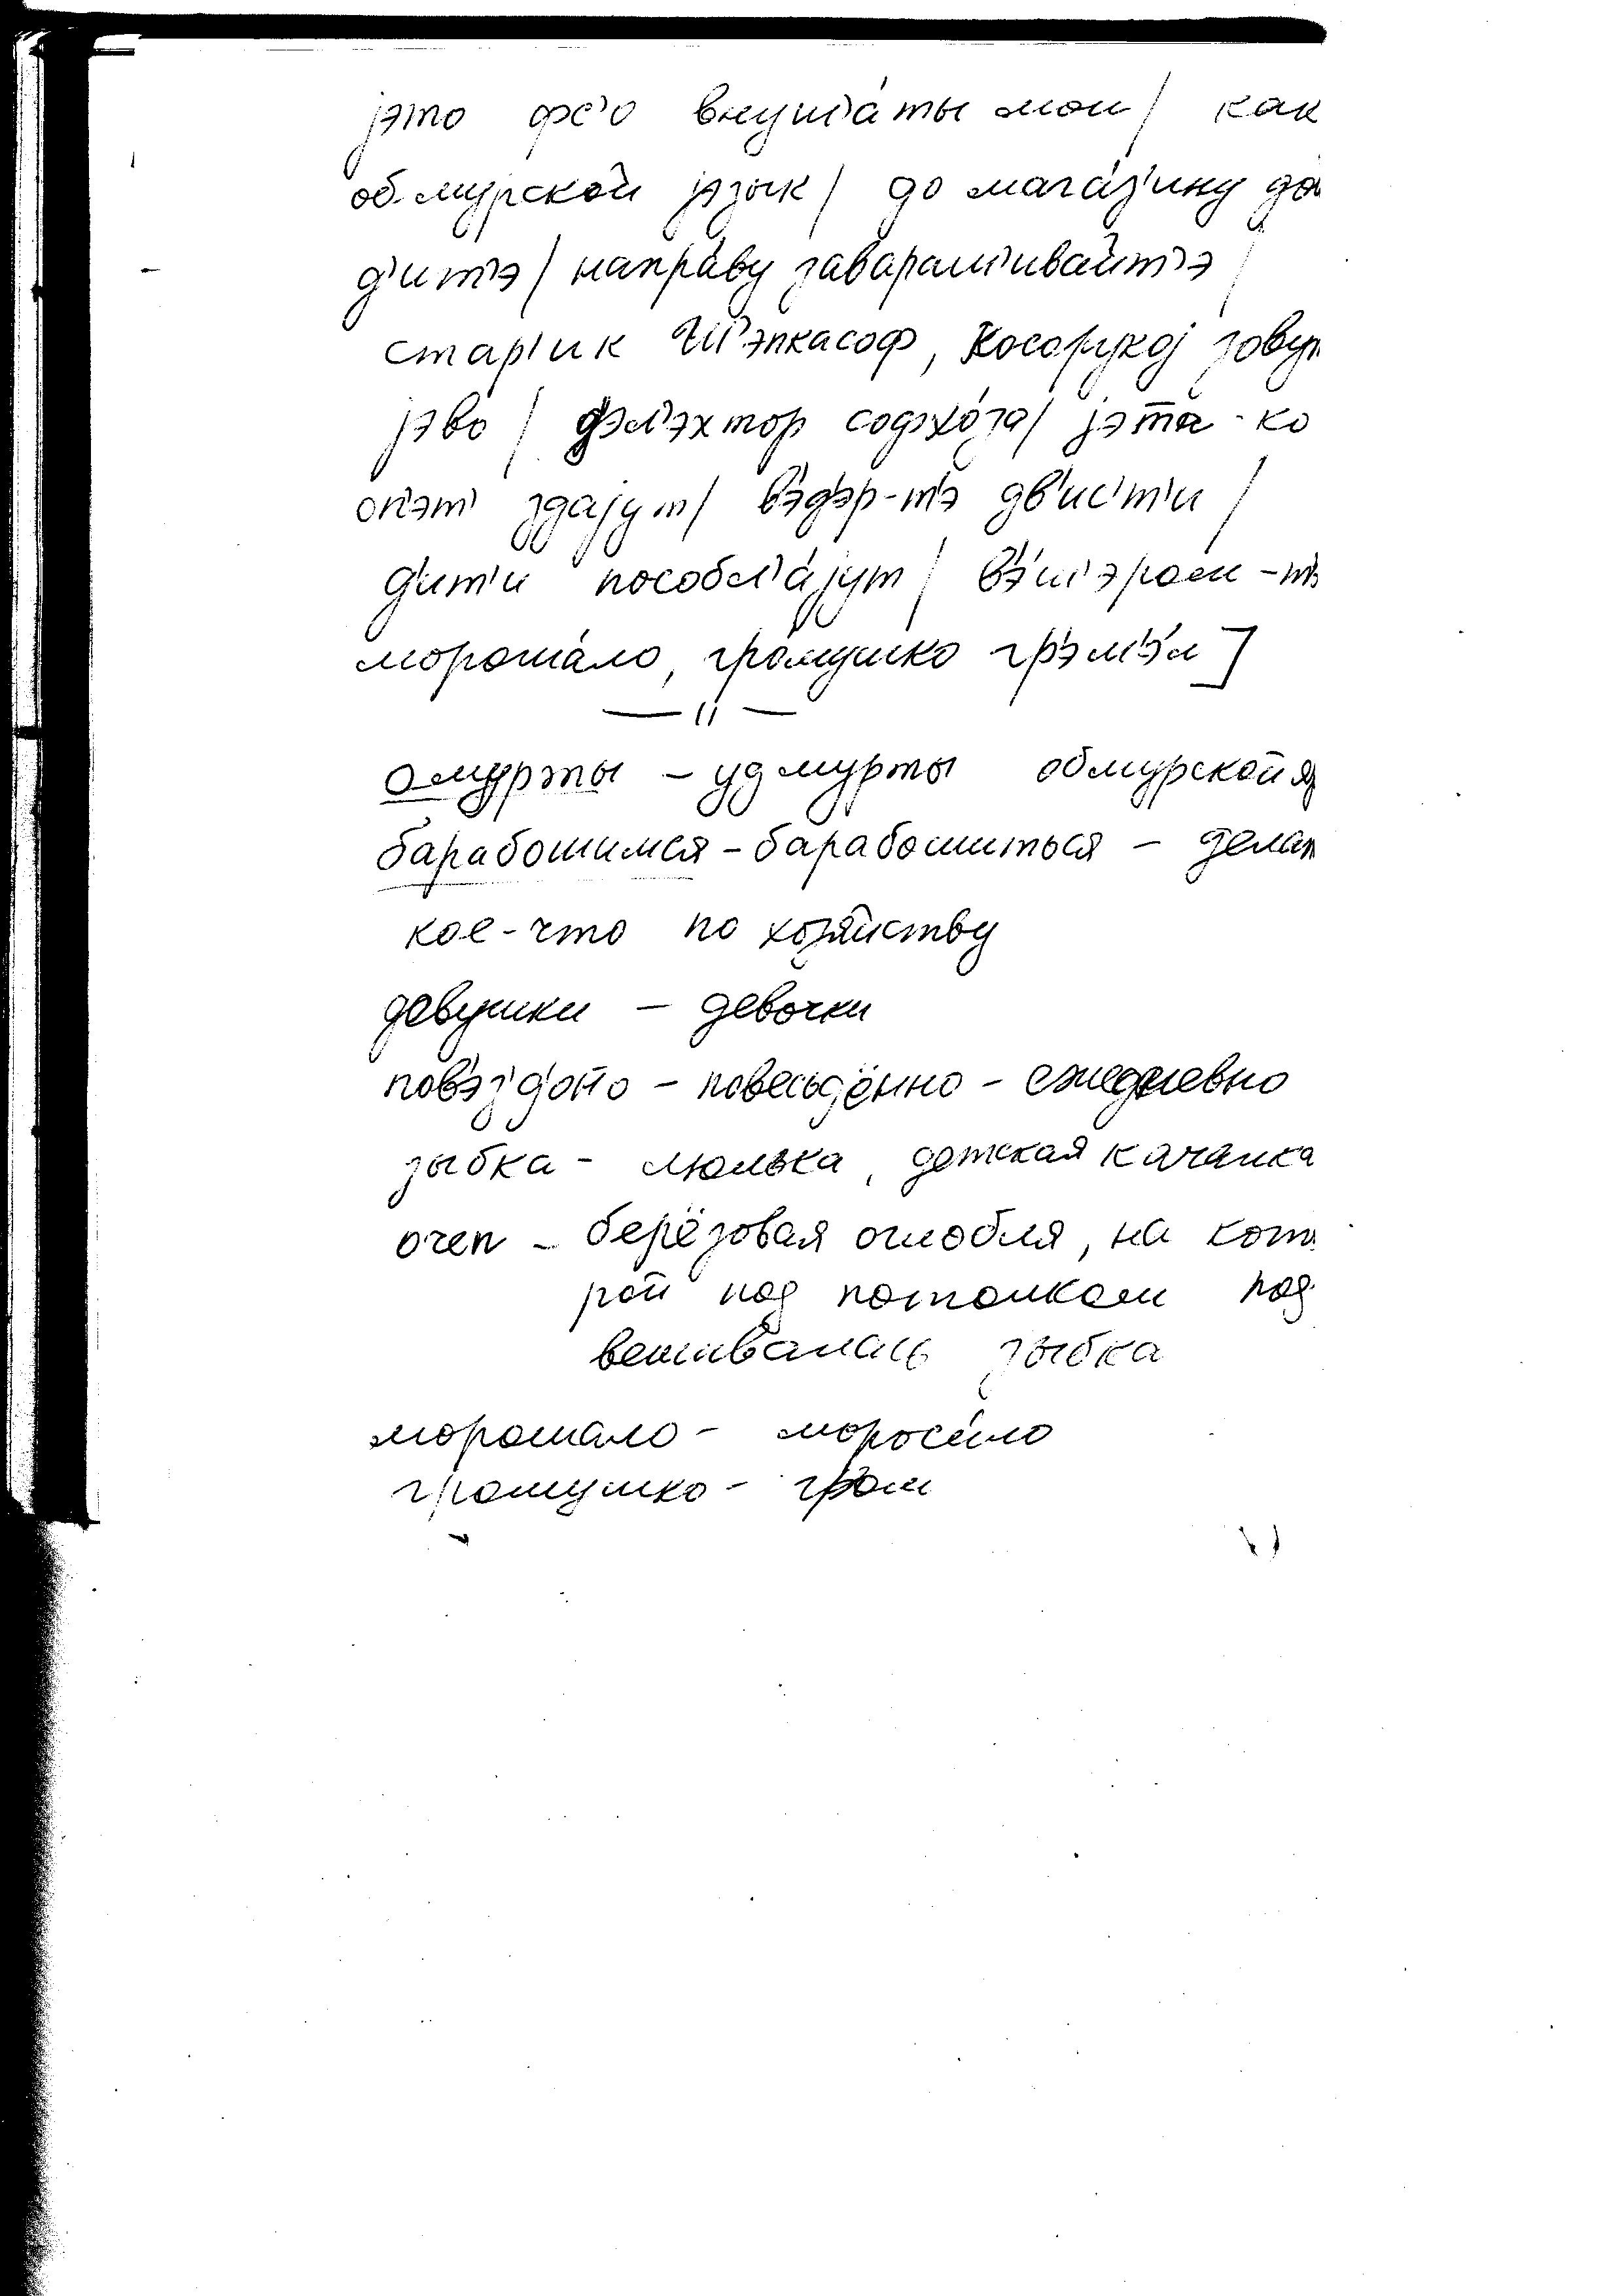 јэто фс'о внуш'а́ты мои / как
обмурской јэзык / до мага́з'ину до
д'ит'э / напра́ву заварам'ивайт'э /
стар'ик Ш'эпкасоф, Косорукој зову
јэво / д'эл'эхтор софхо́за / јэта-ко
оп'эт' здајут / в'эд'эр-т'э дв'ис'т'и /
д'ит'и пособл'а́јут / в'э́ш'эром-т'
мороша́ло, гро́мушко гр'эм'э́л ]
— // —
омурты – удмурты обмурской я
барабошимся – барабошиться – делат
кое-что по хозяйству
девушки – девочки
пов'эз'д'онно – повесьдённо – ежедневно
зыбка – люлька, детская качалка
очеп – берёзовая оглобля, на кото
рой под потолком под
вешивалась зыбка
морошало – моросило
громушко – гром